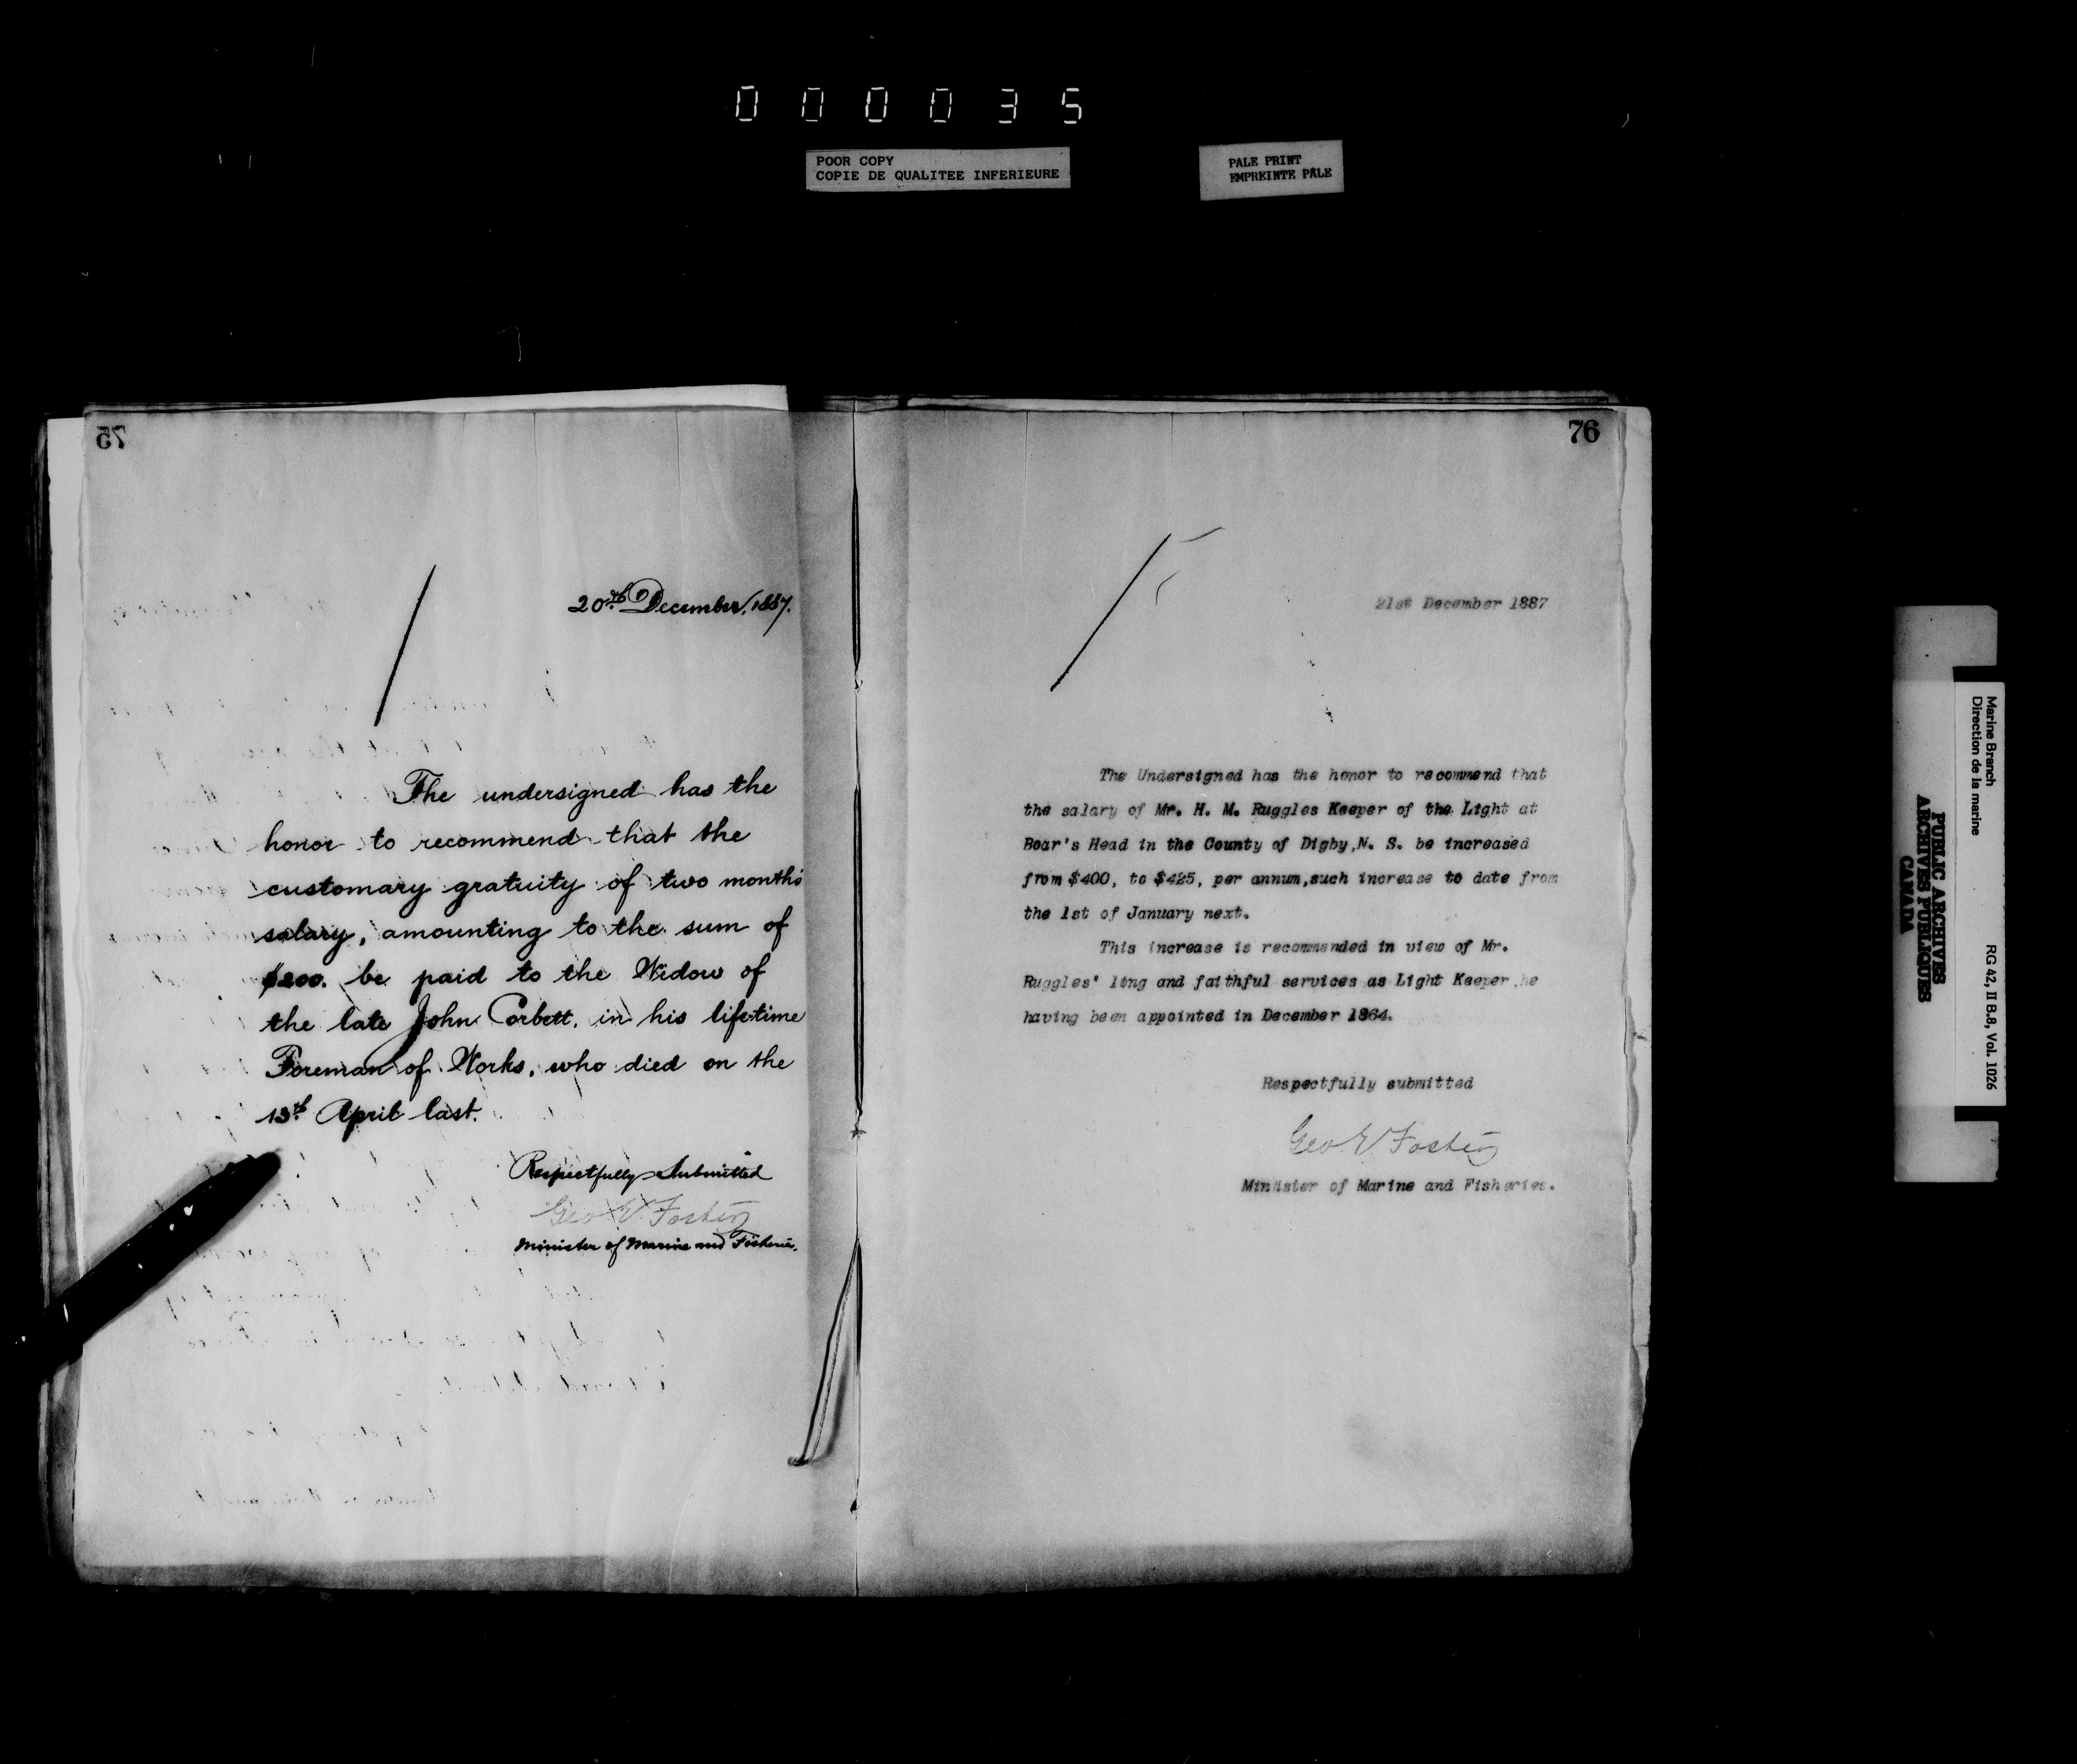 000035
POOR COPY
COPIE DE QUALITEE INFERIEURE
PALE PRINT
EMPREINTE PÂLE
75
20th December, 1887.
The undersigned has the
honor to recommend that the
customary gratuity of two months'
salary, amounting to the sum of
$200. be paid to the Widow of
the late John Corbett, in his lifetime
Foreman of Works, who died on the
13th April last.
Respectfully Submitted
Geo E Foster
Minister of Marine and Fisheries.
76
21st December 1887
The Undersigned has the honor to recommend that
the salary of Mr. H. M. Ruggles Keeper of the Light at
Boar's Head in the County of Digby,N. S. be increased
from $400, to $425, per annum,such increase to date from
the 1st of January next.
This increase is recommended in view of Mr.
Ruggles' long and faithful services as Light Keeper,he
having been appointed in December 1864.
Respectfully submitted
Geo E Foster
Minister of Marine and Fisheries.
Marine Branch
Direction de la marine
RG 42, II B.8, Vol. 1026
PUBLIC ARCHIVES
ARCHIVES PUBLIQUES
CANADA